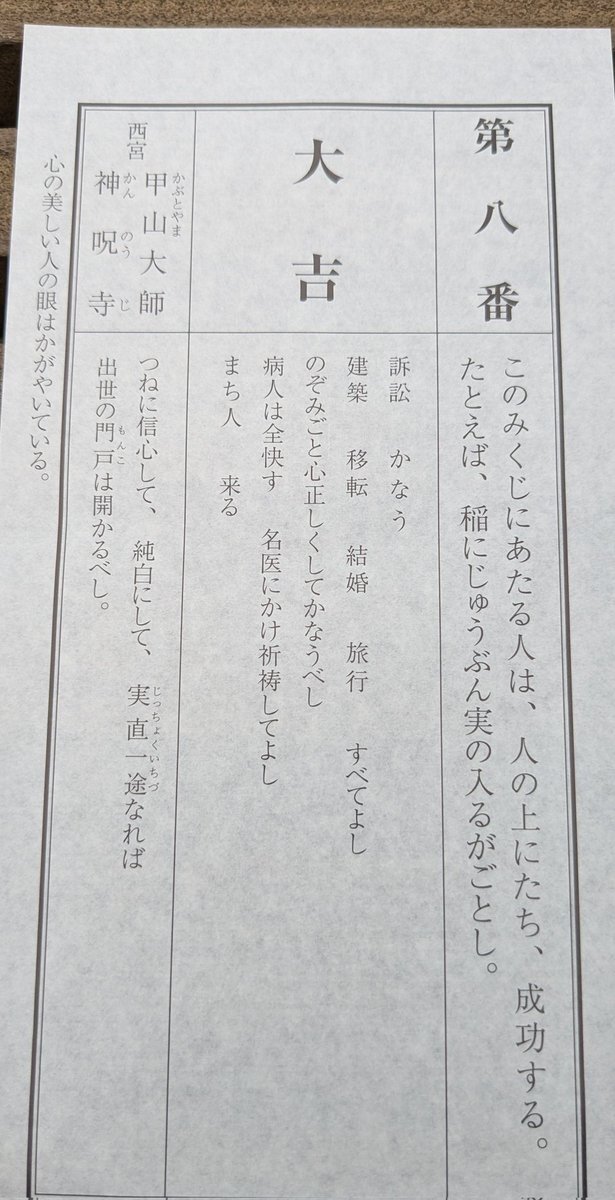 第八番
このみくじにあたる人は、人の上にたち、成功する。
たとえば、稲にじゅうぶん実の入るがごとし。
大吉
訴訟 かなう
建築 移転 結婚 旅行 すべてよし
のぞみごと心正しくしてかなうべし
病人は全快す 名医にかけ祈祷してよし
まち人 来る
西宮
甲山大師
かぶとやま
神呪寺
かんのうじ
つねに信心して、純白にして、実直一途なれば
じっちょくいちづ
出世の門戸は開かるべし。
もんこ
心の美しい人の眼はかがやいている。